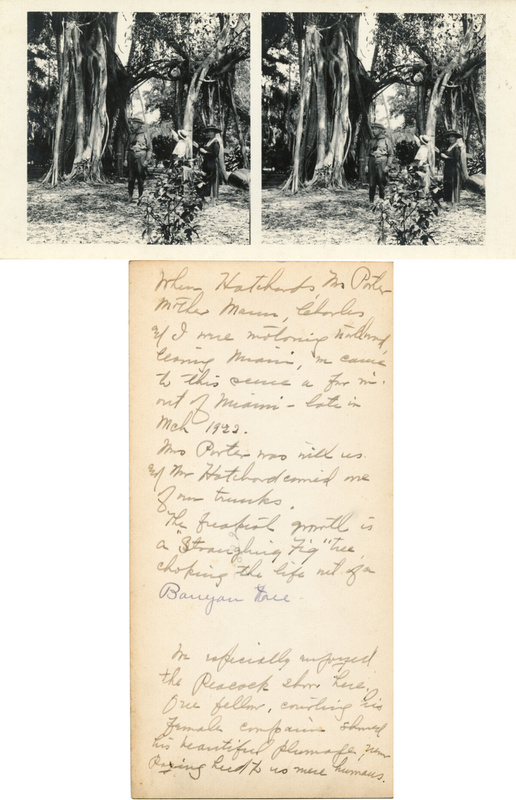 When Hatchards, Mrs Porter
Mother Mann, Charles
& I were motoring northward,
leaving Miami, we came
to this scene a few mi.
out of Miami - late in
Mch 1922.
Mrs Porter was with us
& Mr Hatchard carried one
of our trunks.
The freakish growth is
a "Strangling Fig" tree
choking the life out of a
Banyan tree.
We especially enjoyed
the Peacock show here.
One fellow, courting his
female companion showed
his beautiful plumage, never
Paying heed to us mere humans.